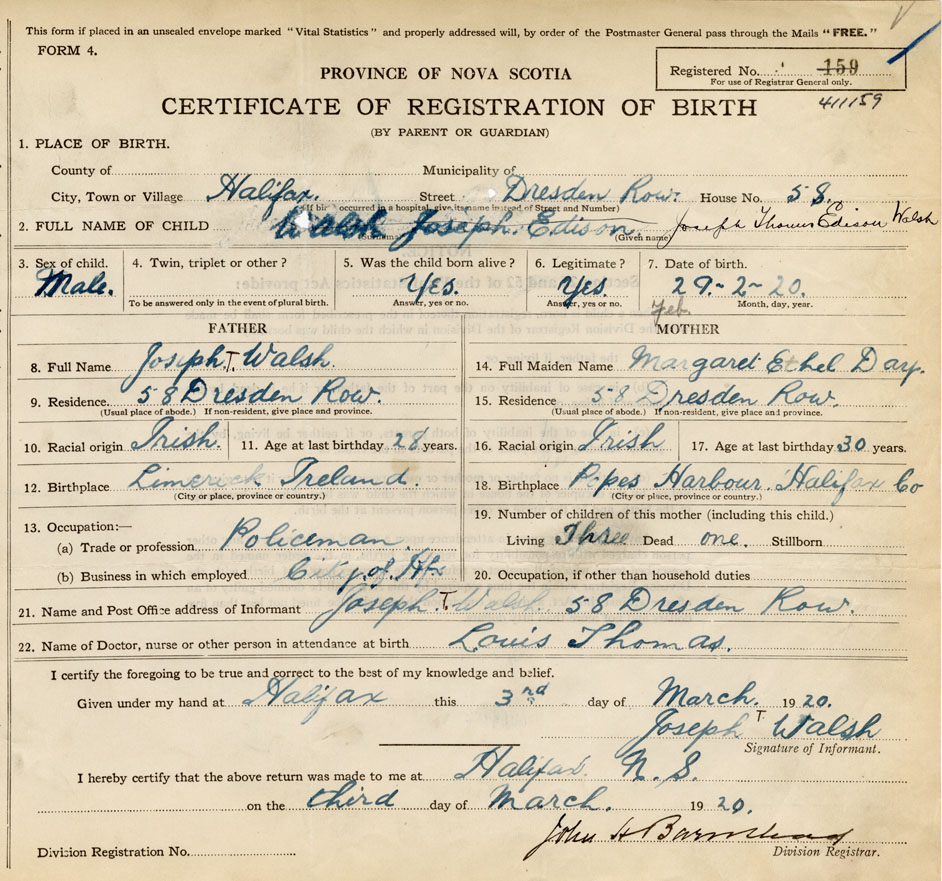 This form if placed in an unsealed envelope marked "Vital Statistics" and properly addressed will, by order of the Postmaster General pass through the Mails "FREE."
FORM 4.
Registered No. 159
For use of Registrar General only.
411159
PROVINCE OF NOVA SCOTIA
CERTIFICATE OF REGISTRATION OF BIRTH
(BY PARENT OR GUARDIAN)
1. PLACE OF BIRTH.
County of Municipality of
City, Town or Village Halifax. Street Dresden Row. House No. 58.
(If birth occurred in a hospital, give its name instead of Street and Number)
2. FULL NAME OF CHILD Walsh Joseph. Edison. Joseph Thomas Edison Walsh
(Surname) (Given name)
3. Sex of child. Male.
4. Twin, triplet or other?
To be answered only in the event of plural birth.
5. Was the child born alive? Yes.
Answer, yes or no.
6. Legitimate? Yes.
Answer, yes or no.
7. Date of birth. 29-2-20.
Feb. Month, day, year.
FATHER
8. Full Name Joseph. T. Walsh.
9. Residence. 58 Dresden Row.
(Usual place of abode.) If non-resident, give place and province.
10. Racial origin Irish. 11. Age at last birthday 28 years.
12. Birthplace Limerick Ireland.
(City or place, province or country.)
13. Occupation:—
(a) Trade or profession Policeman
(b) Business in which employed City of Hfx
MOTHER
14. Full Maiden Name Margaret Ethel Day.
15. Residence 58 Dresden Row.
(Usual place of abode.) If non-resident, give place and province.
16. Racial origin Irish 17. Age at last birthday 30 years.
18. Birthplace Popes Harbour. Halifax Co
(City or place, province or country.)
19. Number of children of this mother (including this child.)
Living Three Dead one. Stillborn
20. Occupation, if other than household duties
21. Name and Post Office address of Informant Joseph. T. Walsh. 58 Dresden Row.
22. Name of Doctor, nurse or other person in attendance at birth Louis Thomas.
I certify the foregoing to be true and correct to the best of my knowledge and belief.
Given under my hand at Halifax this 3rd day of March. 1920.
Joseph T. Walsh
Signature of Informant.
I hereby certify that the above return was made to me at Halifax. N.S.
on the third day of March. 1920.
John H Barnstead
Division Registrar.
Division Registration No.